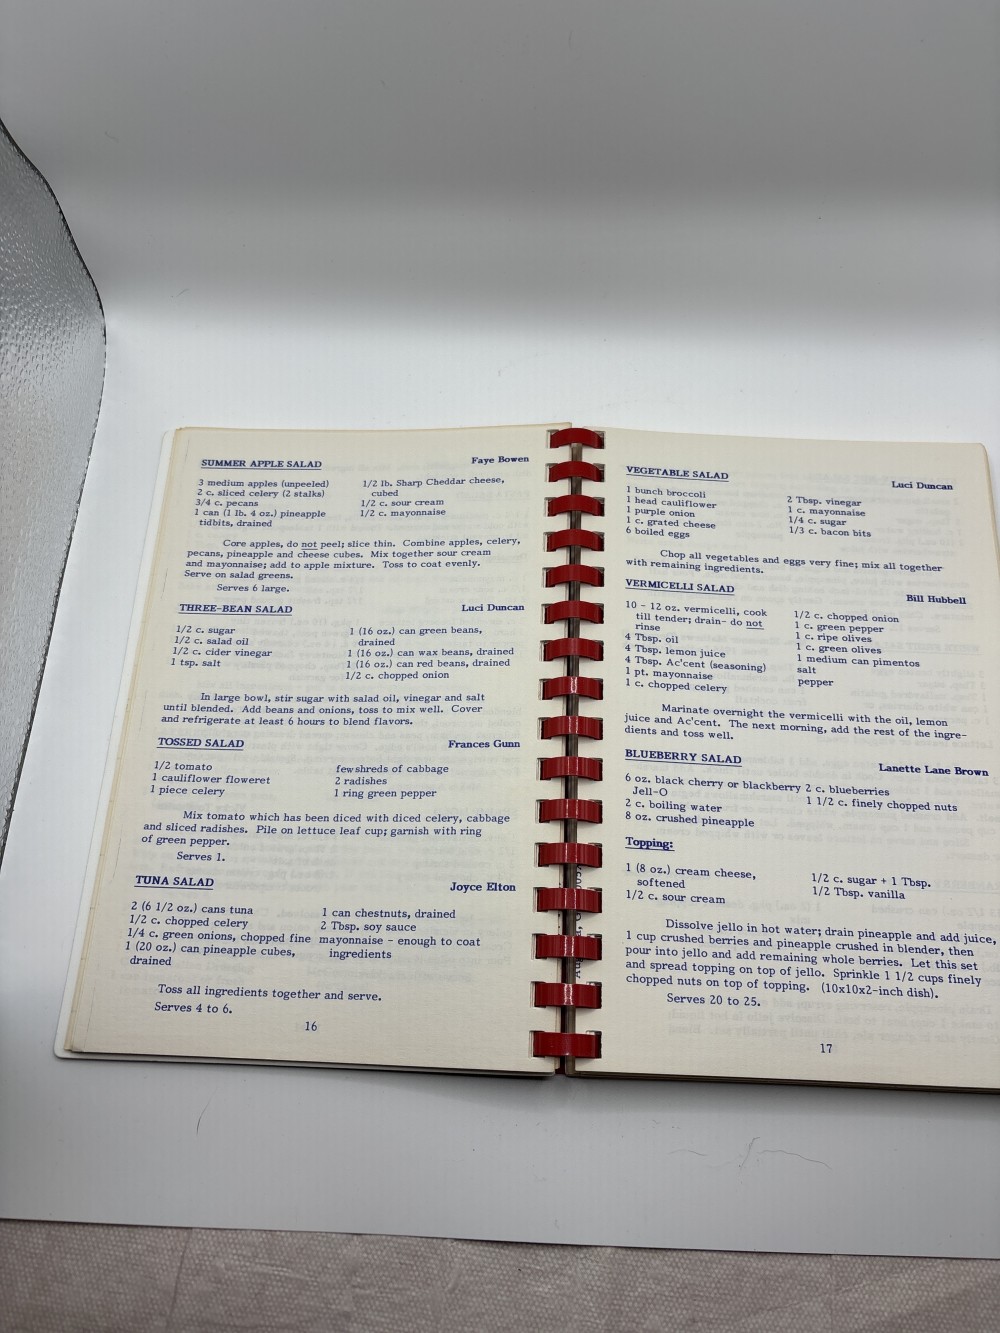 SUMMER APPLE SALAD Faye Bowen
3 medium apples (unpeeled) 1/2 lb. Sharp Cheddar cheese,
2 c. sliced celery (2 stalks) cubed
3/4 c. pecans 1/2 c. sour cream
1 can (1 lb. 4 oz.) pineapple 1/2 c. mayonnaise
tidbits, drained
Core apples, do not peel; slice thin. Combine apples, celery,
pecans, pineapple and cheese cubes. Mix together sour cream
and mayonnaise; add to apple mixture. Toss to coat evenly.
Serve on salad greens.
Serves 6 large.
THREE-BEAN SALAD Luci Duncan
1/2 c. sugar 1 (16 oz.) can green beans,
1/2 c. salad oil drained
1/2 c. cider vinegar 1 (16 oz.) can wax beans, drained
1 tsp. salt 1 (16 oz.) can red beans, drained
1/2 c. chopped onion
In large bowl, stir sugar with salad oil, vinegar and salt
until blended. Add beans and onions, toss to mix well. Cover
and refrigerate at least 6 hours to blend flavors.
TOSSED SALAD Frances Gunn
1/2 tomato few shreds of cabbage
1 cauliflower floweret 2 radishes
1 piece celery 1 ring green pepper
Mix tomato which has been diced with diced celery, cabbage
and sliced radishes. Pile on lettuce leaf cup; garnish with ring
of green pepper.
Serves 1.
TUNA SALAD Joyce Elton
2 (6 1/2 oz.) cans tuna 1 can chestnuts, drained
1/2 c. chopped celery 2 Tbsp. soy sauce
1/4 c. green onions, chopped fine mayonnaise - enough to coat
1 (20 oz.) can pineapple cubes, ingredients
drained
Toss all ingredients together and serve.
Serves 4 to 6.
16
VEGETABLE SALAD Luci Duncan
1 bunch broccoli 2 Tbsp. vinegar
1 head cauliflower 1 c. mayonnaise
1 purple onion 1/4 c. sugar
1 c. grated cheese 1/3 c. bacon bits
6 boiled eggs
Chop all vegetables and eggs very fine; mix all together
with remaining ingredients.
VERMICELLI SALAD Bill Hubbell
10 - 12 oz. vermicelli, cook 1/2 c. chopped onion
till tender; drain- do not 1 c. green pepper
rinse 1 c. ripe olives
4 Tbsp. oil 1 c. green olives
4 Tbsp. lemon juice 1 medium can pimentos
4 Tbsp. Ac'cent (seasoning) salt
1 pt. mayonnaise pepper
1 c. chopped celery
Marinate overnight the vermicelli with the oil, lemon
juice and Ac'cent. The next morning, add the rest of the ingre-
dients and toss well.
BLUEBERRY SALAD Lanette Lane Brown
6 oz. black cherry or blackberry 2 c. blueberries
Jell-O 1 1/2 c. finely chopped nuts
2 c. boiling water
8 oz. crushed pineapple
Topping:
1 (8 oz.) cream cheese, 1/2 c. sugar + 1 Tbsp.
softened 1/2 Tbsp. vanilla
1/2 c. sour cream
Dissolve jello in hot water; drain pineapple and add juice,
1 cup crushed berries and pineapple crushed in blender, then
pour into jello and add remaining whole berries. Let this set
and spread topping on top of jello. Sprinkle 1 1/2 cups finely
chopped nuts on top of topping. (10x10x2-inch dish).
Serves 20 to 25.
17